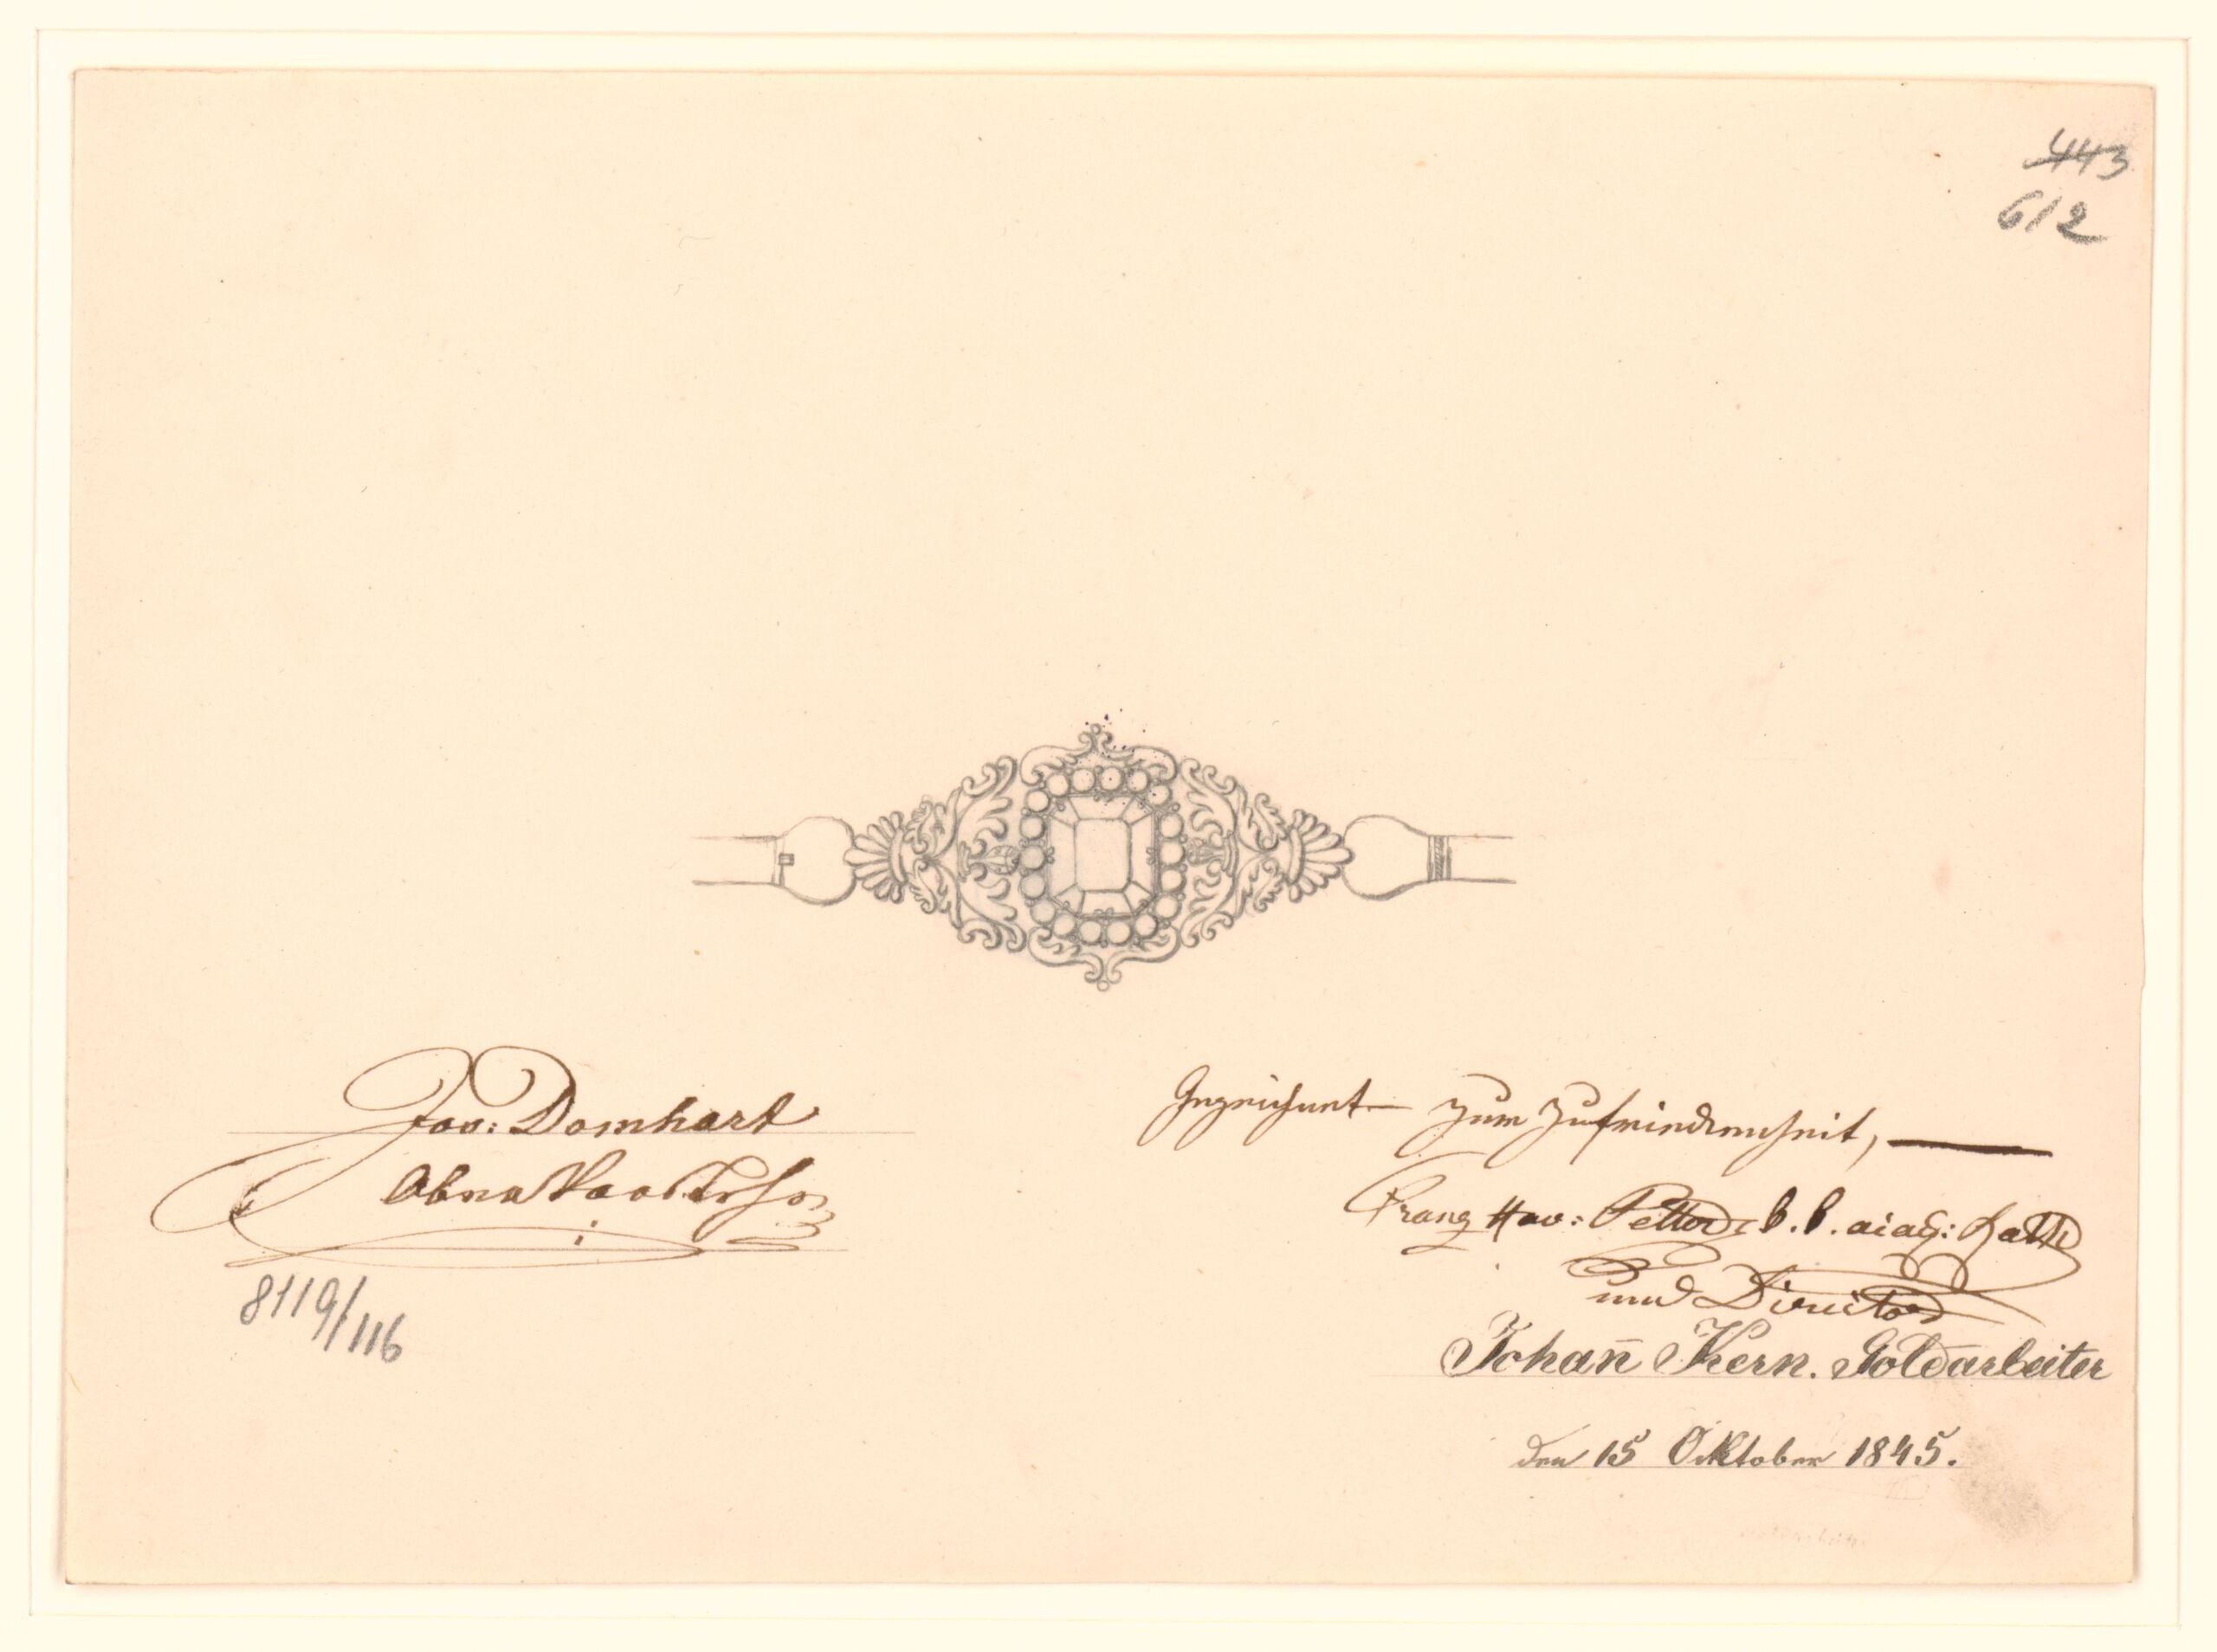 443
612
Jos: Domhart
Gezeichnet zum Zufriedenheit,
Obern Vorsteher
8119/116
Franz Xav: Petter k. k. akad: Rath
und Director
Johan̄ Kern. Goldarbeiter
den 15 Oktober 1845.